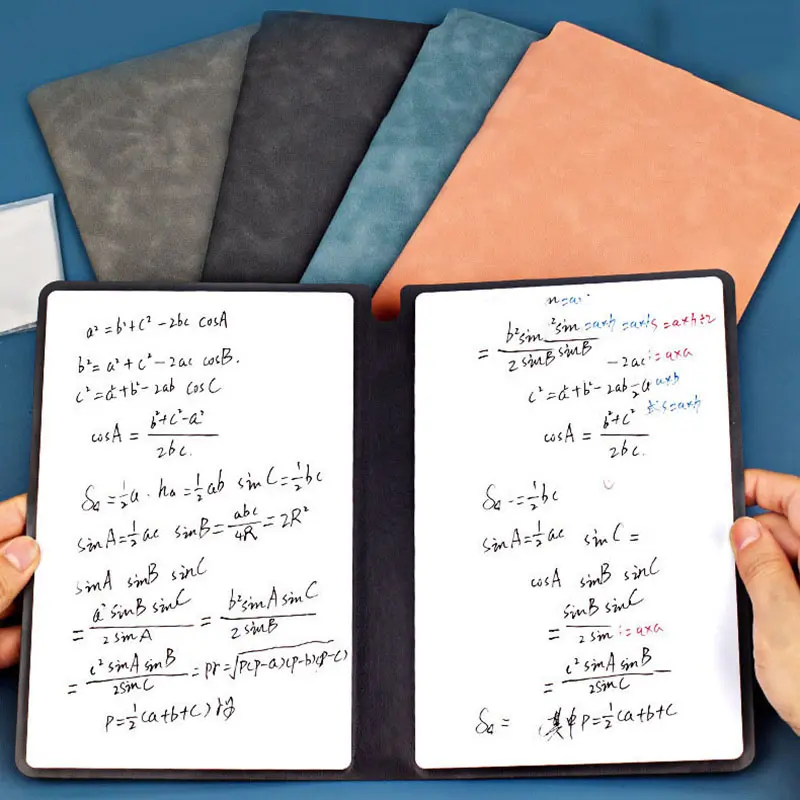 a² = b² + c² - 2bc cosA
b² = a² + c² - 2ac cosB.
c² = a² + b² - 2ab cosC
cosA = (b² + c² - a²) / 2bc.
S△ = ½a · ha = ½ab sinC = ½bc
sinA = ½ac sinB = abc / 4R = 2R²
sinA sinB sinC
= a² sinB sinC / 2sinA = b² sinA sinC / 2sinB
= c² sinA sinB / 2sinC = pr = √p(p-a)(p-b)(p-c)
P = ½(a+b+c)
= b² sin² sin / 2 sinB sinB = a×h = a×h÷2
- 2ac = a×a
c² = a² + b² - 2ab a×h
cosA = b² + c² / 2bc. S = a×h
S△ = ½bc
sinA = ½ac sinC =
cosA sinB sinC
= sinB sinC / 2sin = a×a
= c² sinA sinB / 2sinC
S△ = 其中P = ½(a+b+c